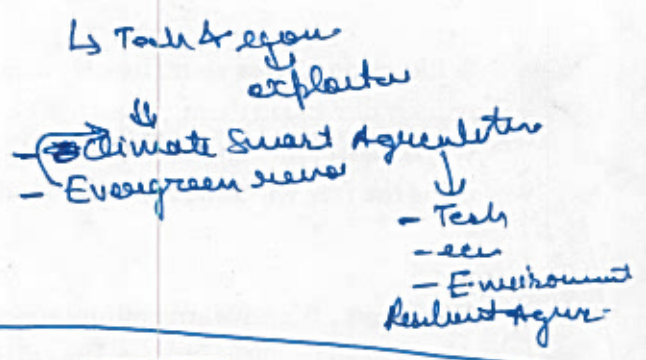 ↳ Tech & egou
exploiter
- Climate Smart Agriculture
- Evergreen revo
- Tech
- eco
- Environment
Resilient Agri.